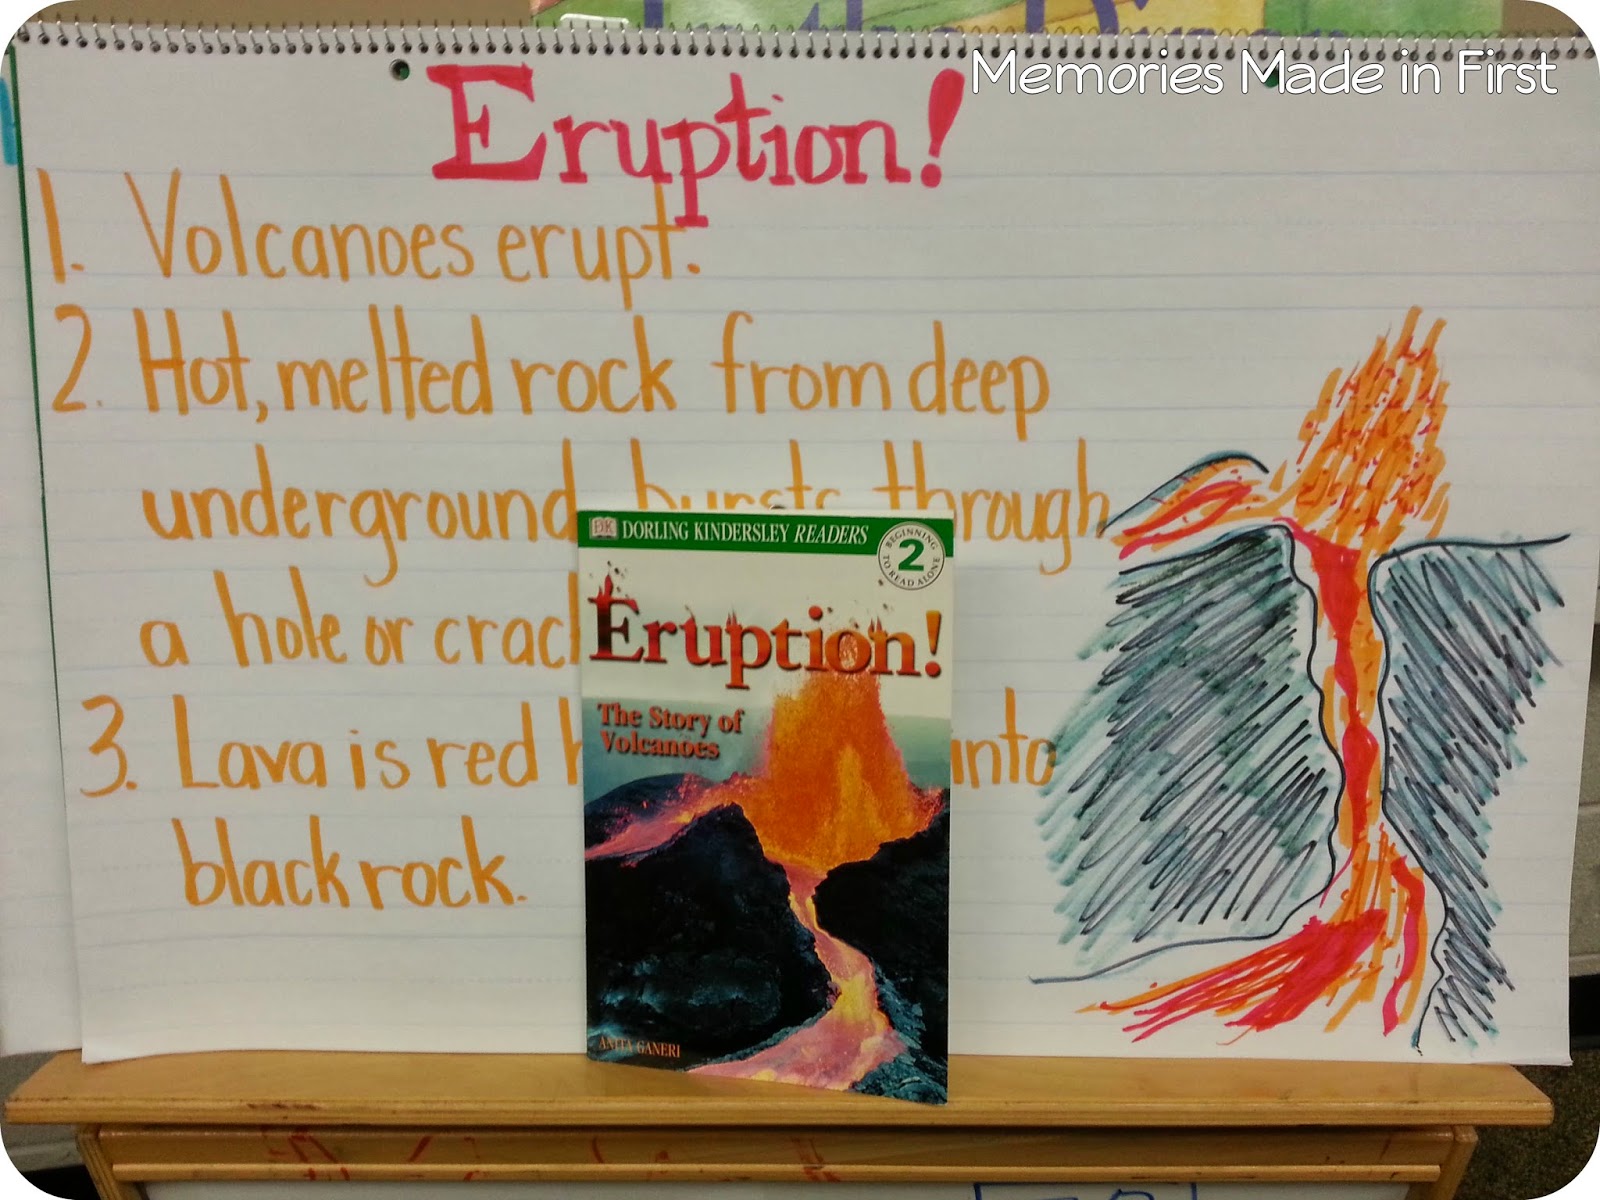 Memories Made in First
Eruption!
1. Volcanoes erupt.
2. Hot, melted rock from deep
underground bursts through
a hole or crac
3. Lava is red h into
black rock.
DK DORLING KINDERSLEY READERS
BEGINNING 2 TO READ ALONE
Eruption!
The Story of
Volcanoes
ANITA GANERI